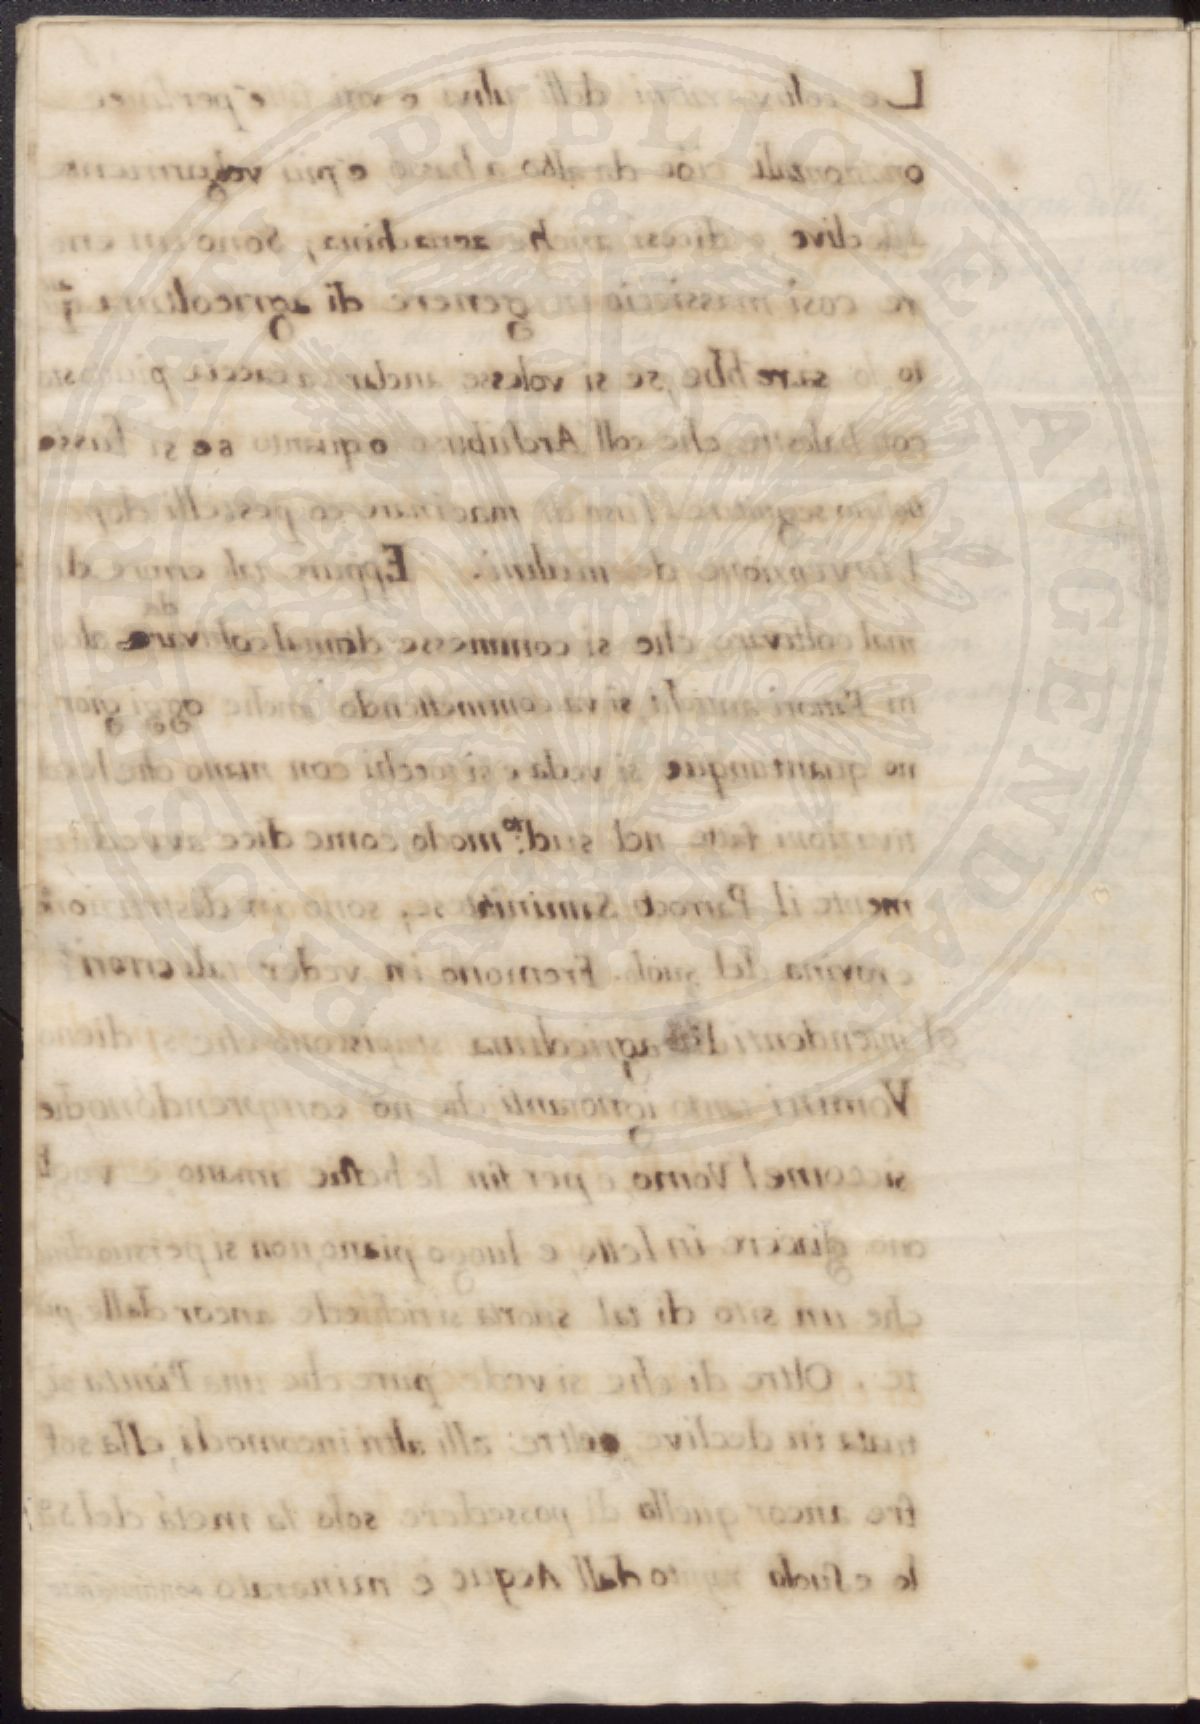 Le coltivazioni delli ulivi e viti fatte per linee
orizontali cioè da alto a basso, e più volgarmente
declive, e dicesi anche acquachina, sono un erro
re così massiccio in genere di agricoltura
to lo sarebbe, se si volesse andar a caccia piuttosto
con balestre, che coll Archibuso o quanto se si fusse
voluto seguitare l'uso di macinare co pestelli dopo
l'invenzione de mulini. Eppure tal errore di
mal coltivare, che si commesse da mal coltivare da alcu
ni Fattori antichi, si va commettendo anche oggi gior
no quantunque si veda e si tocchi con mano che le col
tivazioni fatte nel sud.to modo, come dice avvedita
mente il Parroco Saminiatese, sono in distruzione
e rovina del suolo. Fremono in veder tali errori
gl'intendenti di agricoltura stupiscono che si dieno
Vomini tanto ignoranti, che nō comprendono, che
siccome l'Vomo, e per fin le bestie amano, e vogl
ono giacere in letto, e luogo piano, non si persuadino
che un sito di tal sorta si richiede ancor dalle pian
te. Oltre di che si vede pure che una Pianta si
tuata in declive, oltre alli altri incomodi, ella sof
fre ancor quello di possedere solo la metà del so
lo e suolo rapito dall Acque e minorato continuamente
PROSPERITATI PVBLICAE AVGENDAE